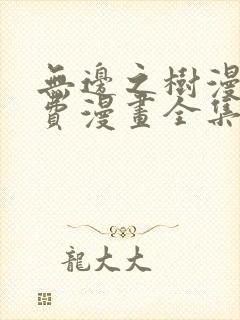 無邊之樹漫
費漫畫全集
龍大大